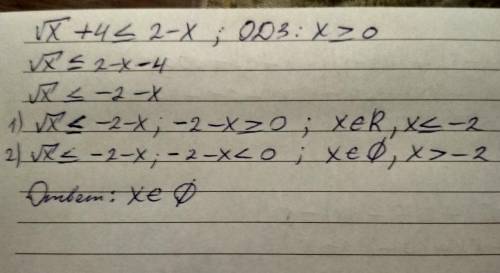 √x + 4 ≤ 2 - x ; ОДЗ: x ≥ 0
√x ≤ 2 - x - 4
√x ≤ -2 - x
1) √x ≤ -2 - x ; -2 - x ≥ 0 ; x ∈ R, x ≤ -2
2) √x ≤ -2 - x ; -2 - x < 0 ; x ∈ Ø, x > -2
Ответ: x ∈ Ø